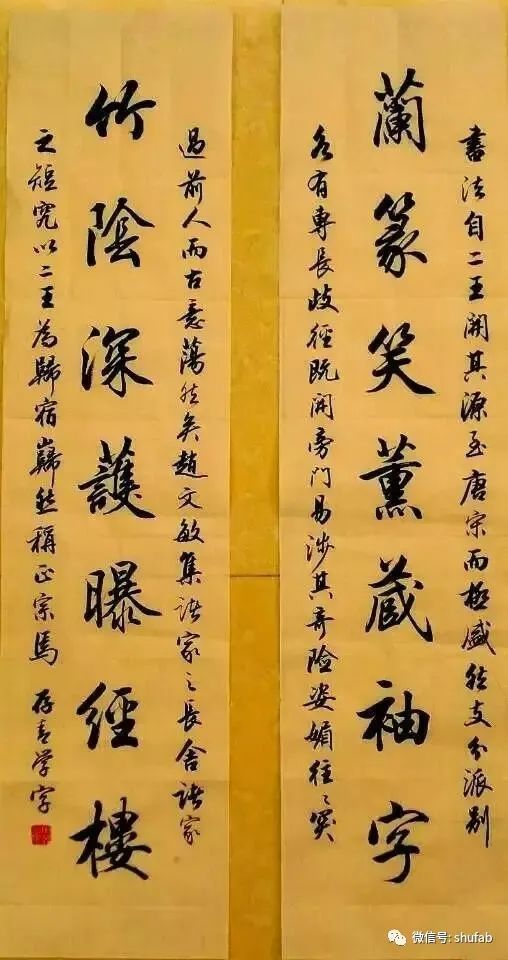 書法自二王開其源至唐宋而極盛然支分派別
蘭篆笑薰蔵袖字
各有專長歧徑既開旁門易涉其奇險姿媚往〻突
過前人而古意蕩然矣趙文敏集諸家之長舍諸家
竹陰深護曝經樓
之短究以二王為歸宿巋然稱正宗焉 存青學字
微信号: shufab